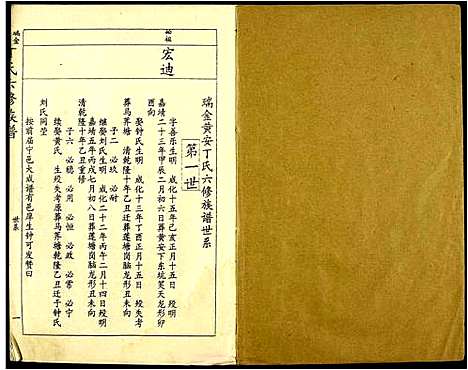 瑞金黄安丁氏六修族谱世系
第一世
始祖
宏迪
字善乐生明 成化十五年己亥正月十五日 殁明
嘉靖二十三年甲辰二月初六日葬黄安下东坑笑天龙形卯
酉向
娶钟氏生明 成化十三年丁酉正月十五日 殁失考
葬马荠塘 清乾隆十年乙丑迁葬莲塘岗脑龙形丑未向
子二 必玖 必耐
继娶刘氏生明 成化二十二年丙午二月十四日殁明
嘉靖五年丙戌七月初八日葬莲塘岗脑龙形丑未向
清乾隆十年乙丑重修
子六 必稳 必用 必恒 必政 必常 必宁
续娶黄氏 生殁失考原葬马荠塘乾隆乙丑迁于钟氏
刘氏同茔
按前届宁邑大成谱有邑庠生钟可发赞曰
瑞金
丁氏六修族谱
世系
一